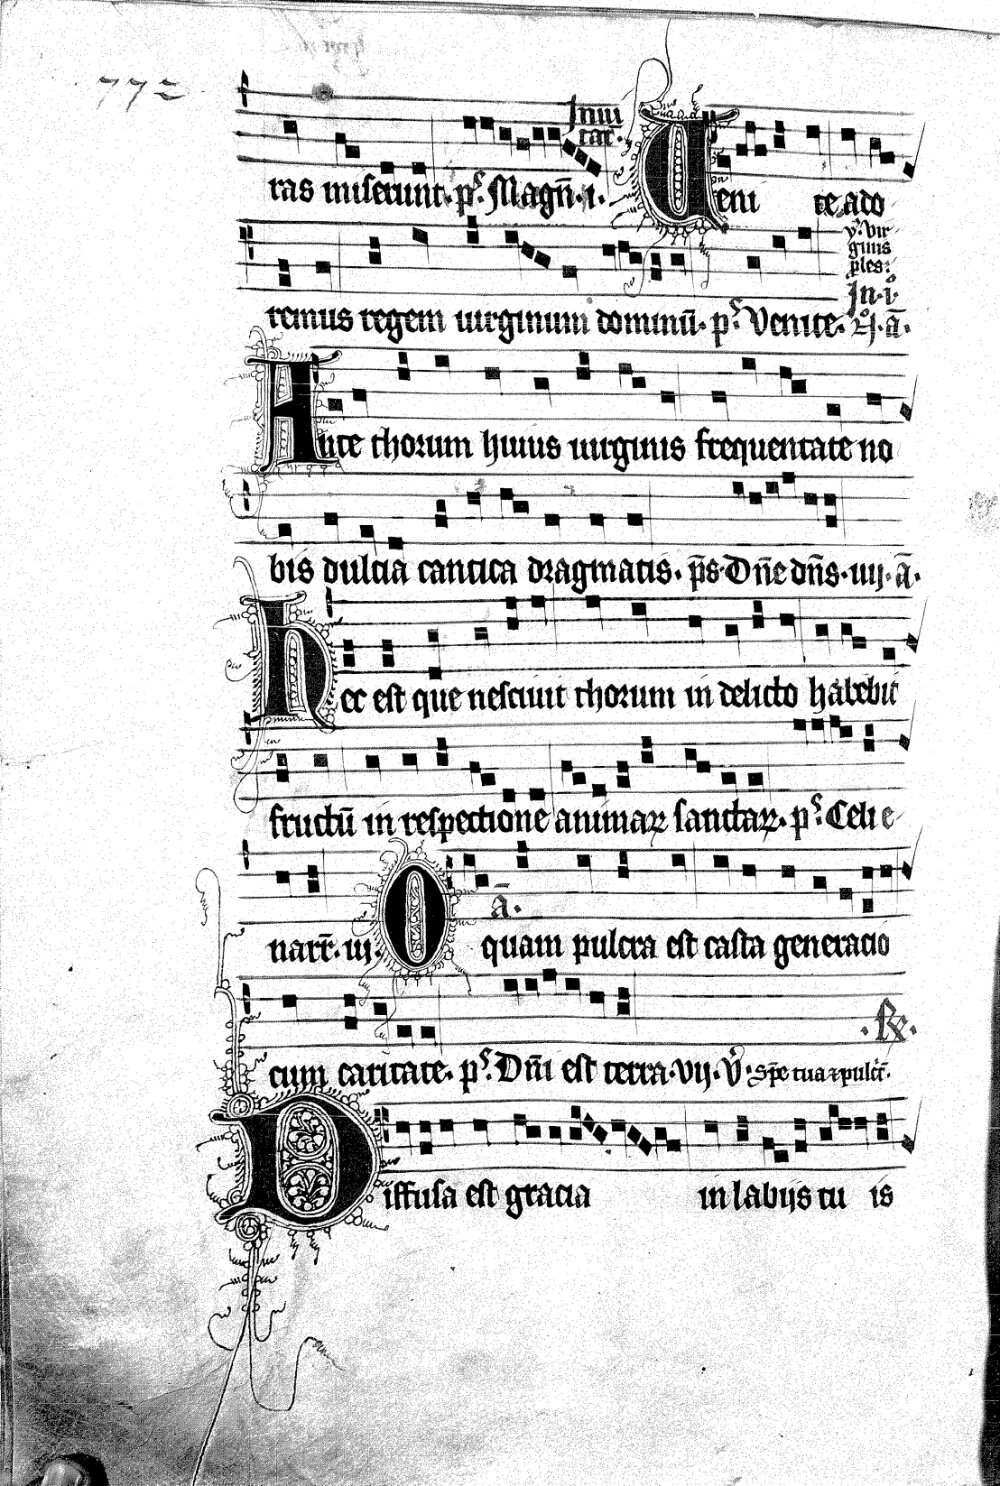 772
Inui
tat.
ras miserunt. pˢ. Magn̄. i. Ueni te ado
v̓. vir
ginis
ples.
In. i.
remus regem uirginum dominū. pˢ. Venite. ā.
Ante thorum huius uirginis frequentate no
bis dulcia cantica dragmatis. p̄s. Dn̄e dn̄s. iiij. ā.
Hec est que nesciuit thorum in delicto habebit
fructū in respectione animaꝝ sanctaꝝ. pˢ. Celi e
narr̄. iij. O quam pulcra est casta generacio
ā.
cum caritate. pˢ. Dn̄i est terra. vij. v̓. Sp̄e tua ⁊ pulcr̄. ℟.
Diffusa est gracia in labijs tu is